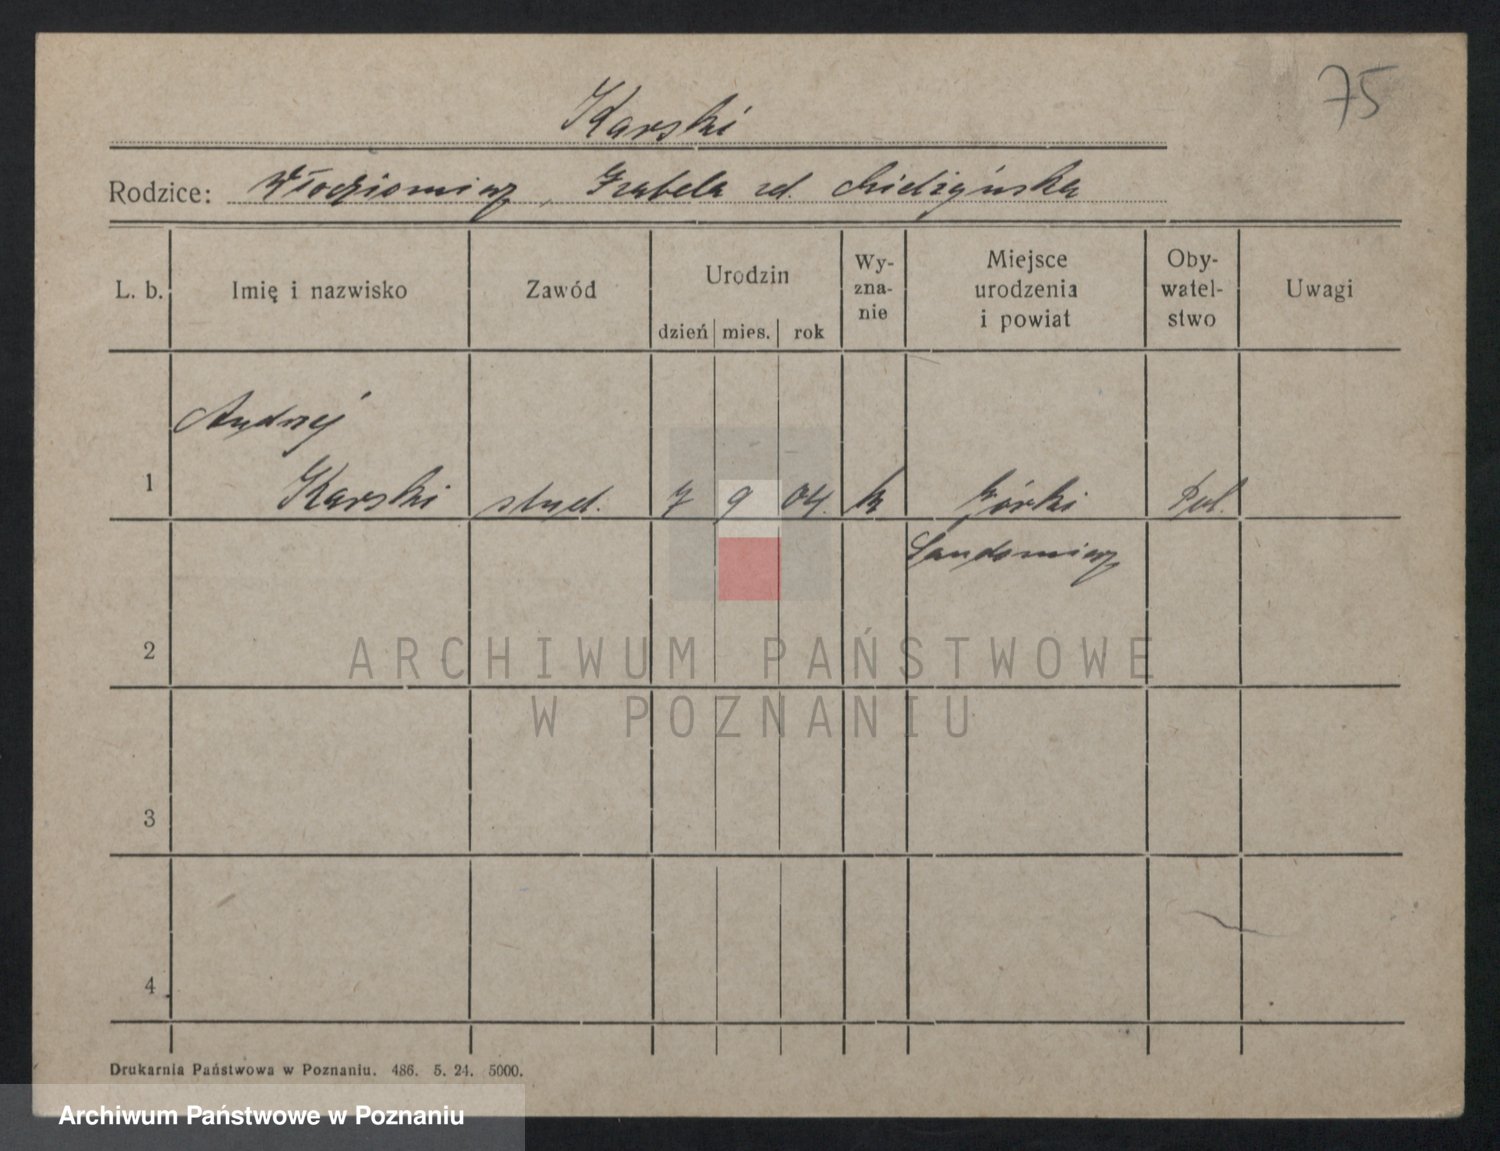 75
Karski
Rodzice: Włodzimierz, Izabela zd.
L. b. Imię i nazwisko Zawód Urodzin dzień mies. rok Wy-zna-nie Miejsce urodzenia i powiat Oby-watel-stwo Uwagi
Andrzej
1 Karski stud. 7 9 04. k Górki Pol.
Sandomierz
2
3
4
ARCHIWUM PAŃSTWOWE
W POZNANIU
Drukarnia Państwowa w Poznaniu. 486. 5. 24. 5000.
Archiwum Państwowe w Poznaniu